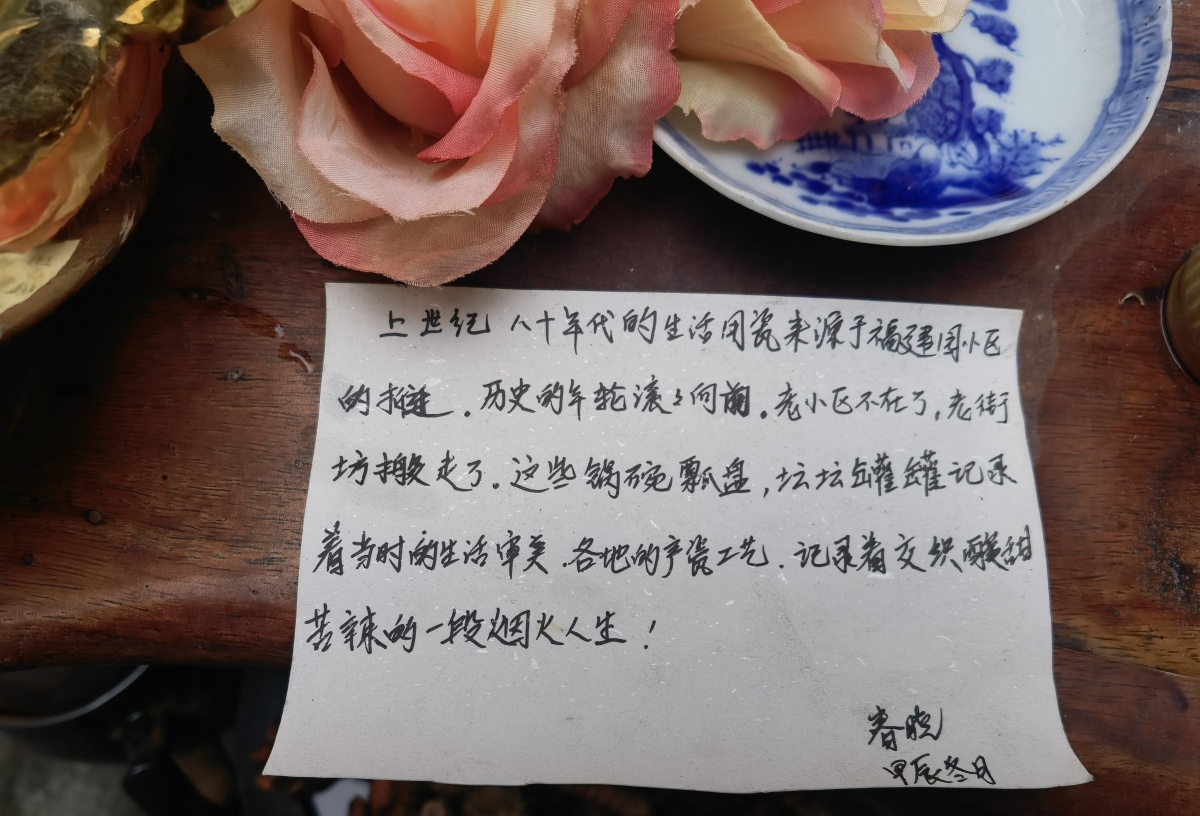 上世纪八十年代的生活用瓷来源于福建围小区
的拆迁。历史的年轮滚滚向前。老小区不在了，老街
坊搬走了。这些锅碗瓢盘，坛坛罐罐记录
着当时的生活审美.各地的产瓷工艺.记录着交织酸甜
苦辣的一段烟火人生！
春晓
甲辰冬月